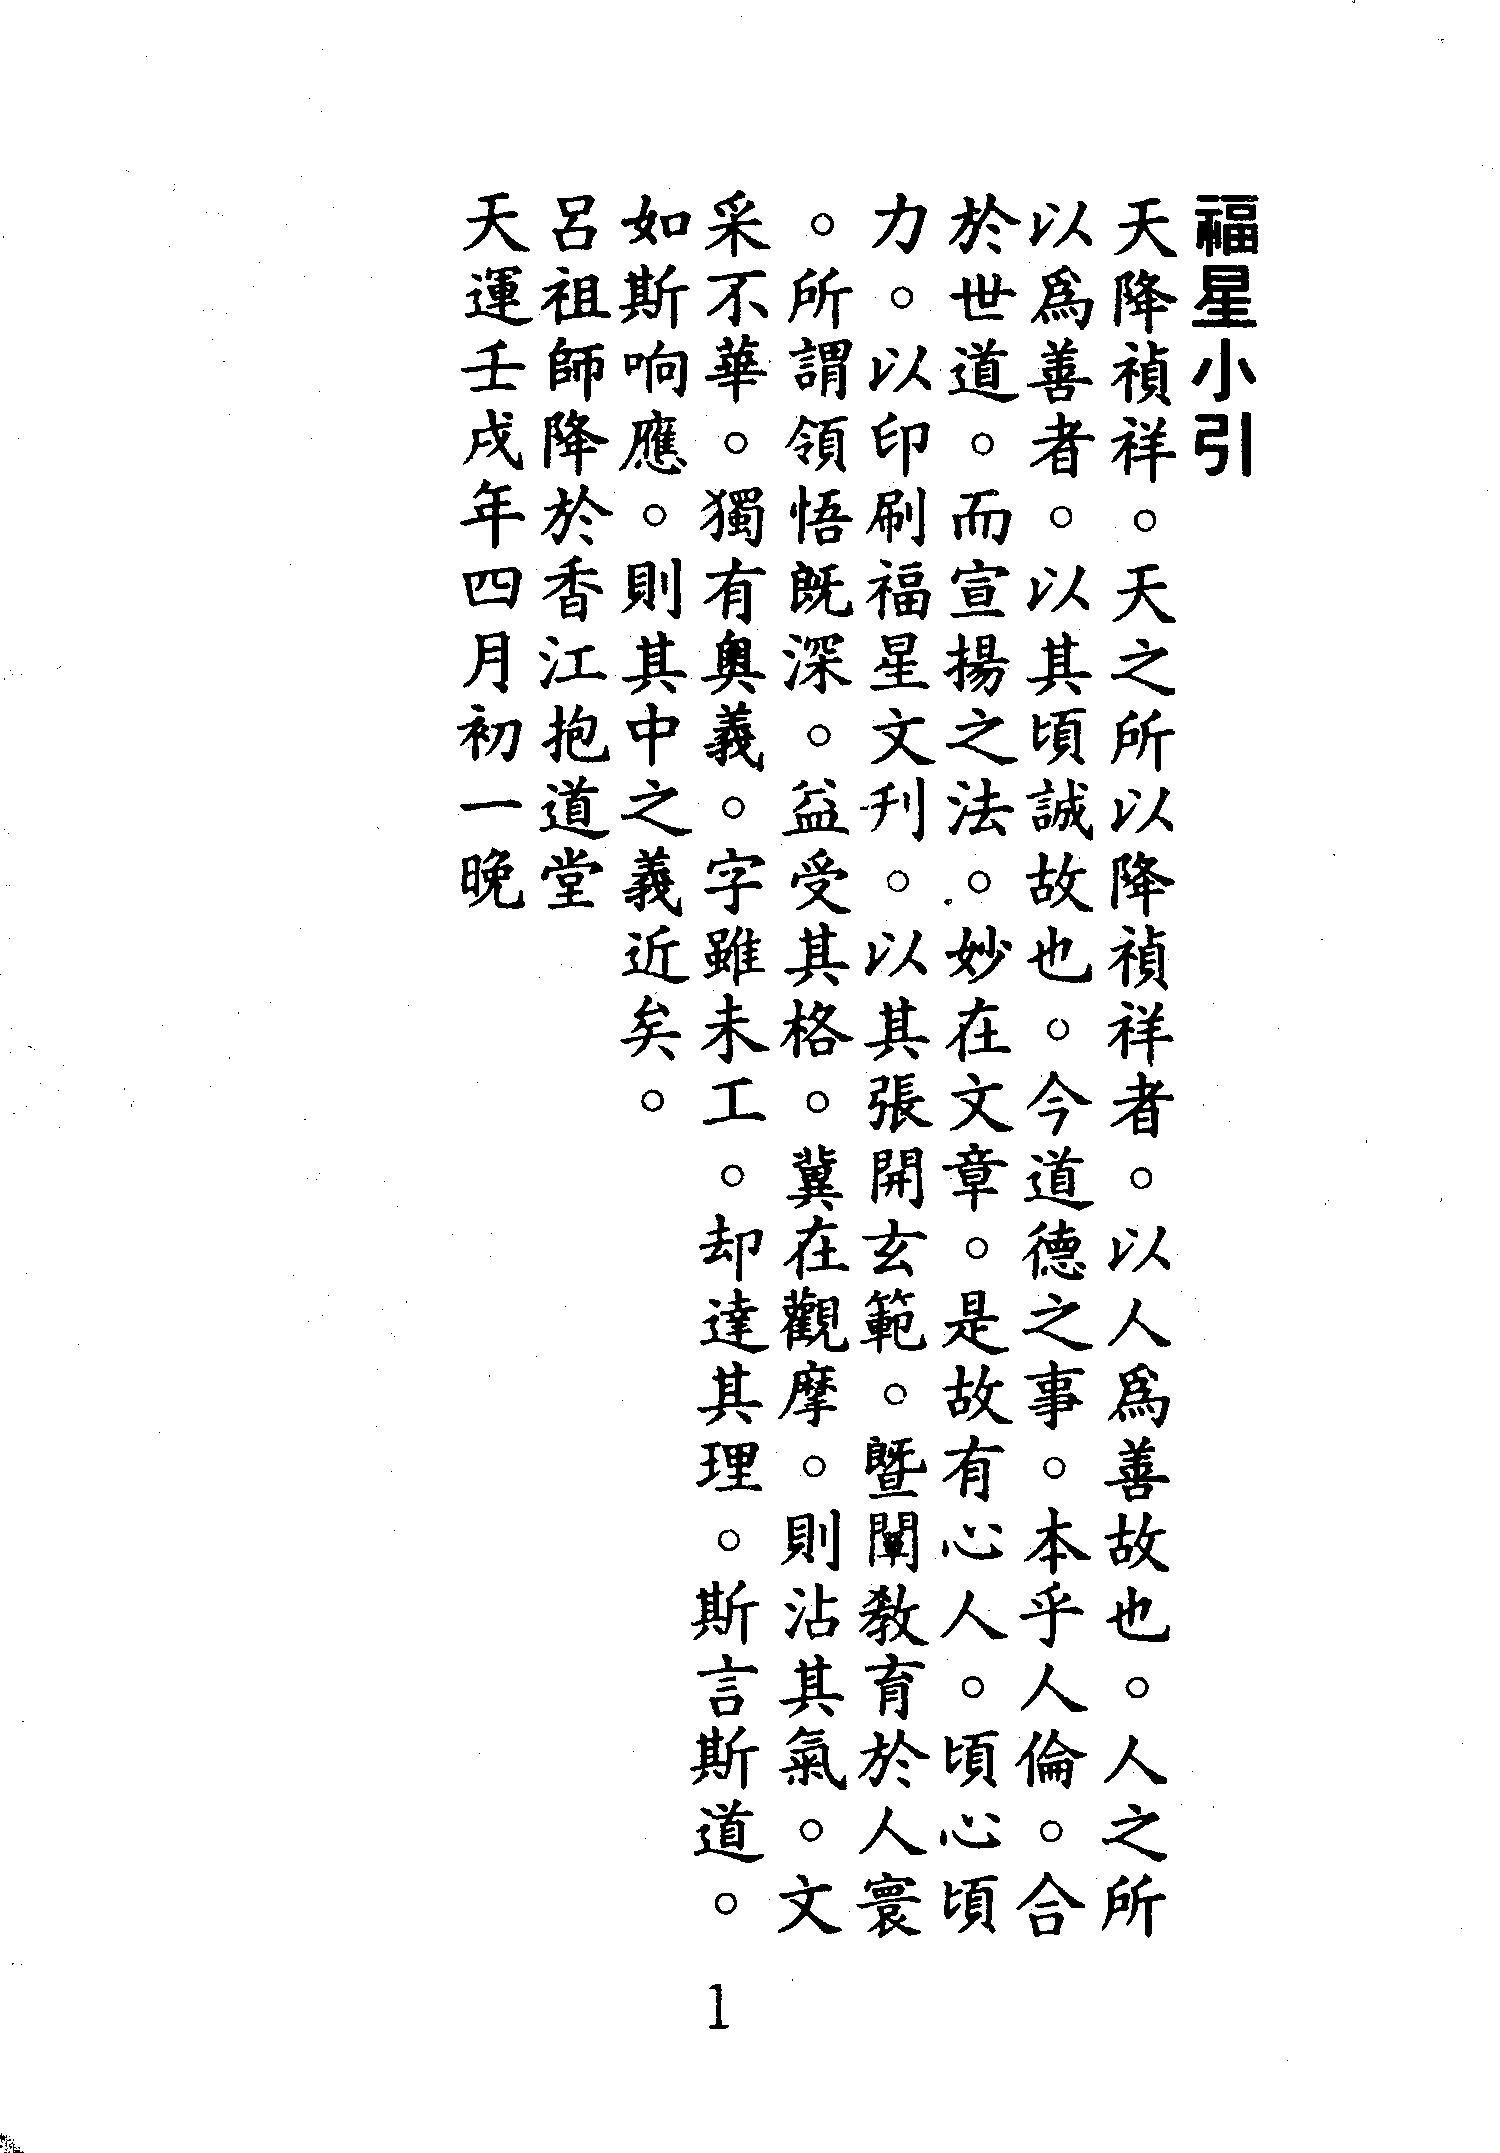 福星小引
天降禎祥。天之所以降禎祥者。以人爲善故也。人之所
以爲善者。以其頃誠故也。今道德之事。本乎人倫。合
於世道。而宣揚之法。妙在文章。是故有心人。頃心頃
力。以印刷福星文刋。以其張開玄範。暨闡教育於人寰
。所謂領悟既深。益受其格。冀在觀摩。則沾其氣。文
采不華。獨有奧義。字雖未工。却達其理。斯言斯道。
如斯响應。則其中之義近矣。
呂祖師降於香江抱道堂
天運壬戌年四月初一晚
1